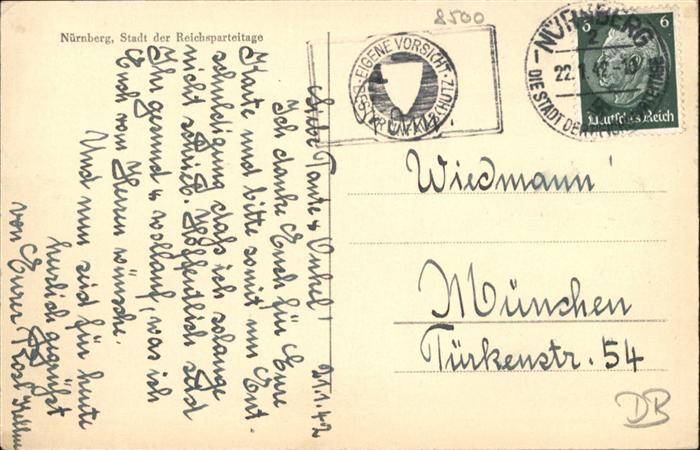 8500
Nürnberg, Stadt der Reichsparteitage
EIGENE VORSICHT
NÜRNBERG
2
22.1.42
DIE STADT DER REICHSPARTEITAGE
6 6
Deutsches Reich
21.1.42
Liebe Tante u Onkel!
Ich danke Euch für Eure
Karte und bitte somit um Ent-
schuldigung daß ich solange
nicht schrieb. Hoffentlich seid
Ihr gesund u wohlauf, was ich
Euch vom Herzen wünsche.
Und nun seid für heute
herzlich gegrüßt
von Eurer
Wiedmann
München
Türkenstr. 54
DB